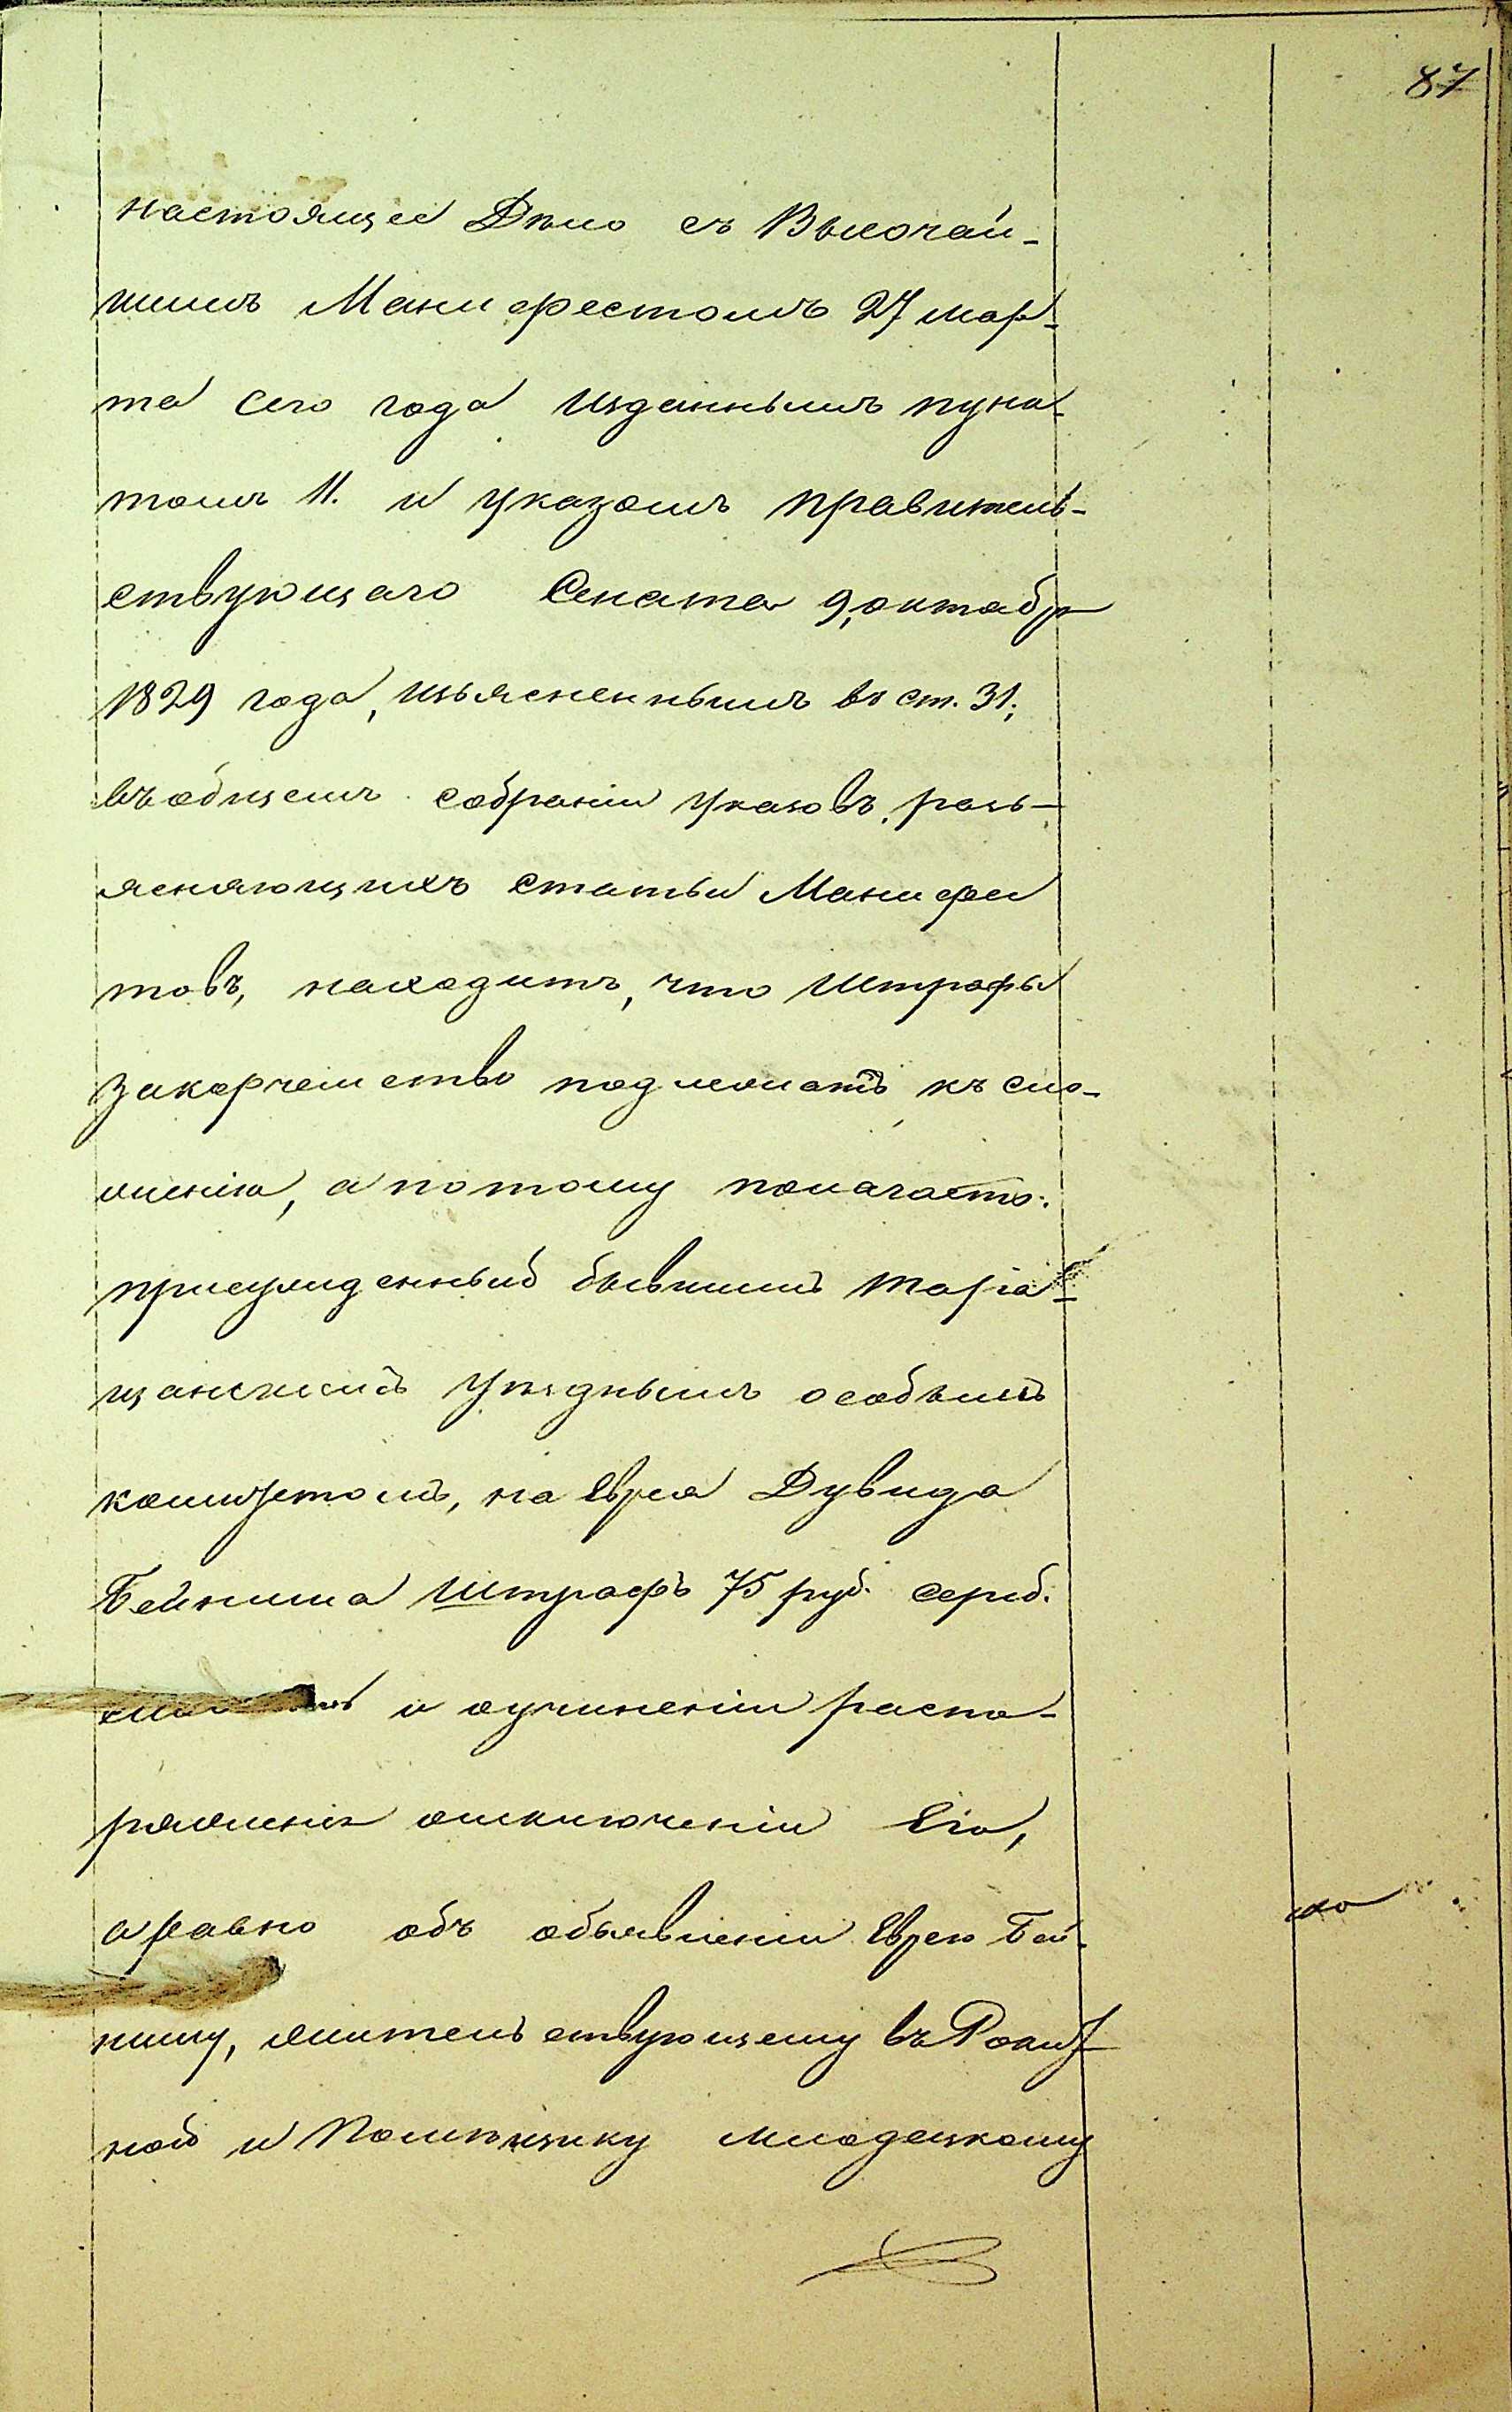 87
настоящее Дѣло съ Высочай-
шимъ Манифестомъ 27 мар-
та сего года изданнымъ пунк-
томъ 11. и указомъ правитель-
ствующаго Сената 9, октября
1829 года, изъясненнымъ въ ст. 31;
въ общемъ собраніи указовъ, разъ-
ясняющихъ статьи Манифес
товъ, находитъ, что Штрафы
за корчемство подлежатъ къ сло-
женію, а потому полагаетъ:
присужденный бывшимъ Тара-
щанскимъ уѣзднымъ особымъ
комитетомъ, на Еврея Дувида
Бейниша Штрафъ 75 руб. сереб.
и о учиненіи распо-
ряженія о исключеніи Его,
а равно объ объявленіи Еврею Бей-
нишу, жительствующему въ Рокит-
ной и Помѣщику Младецкому